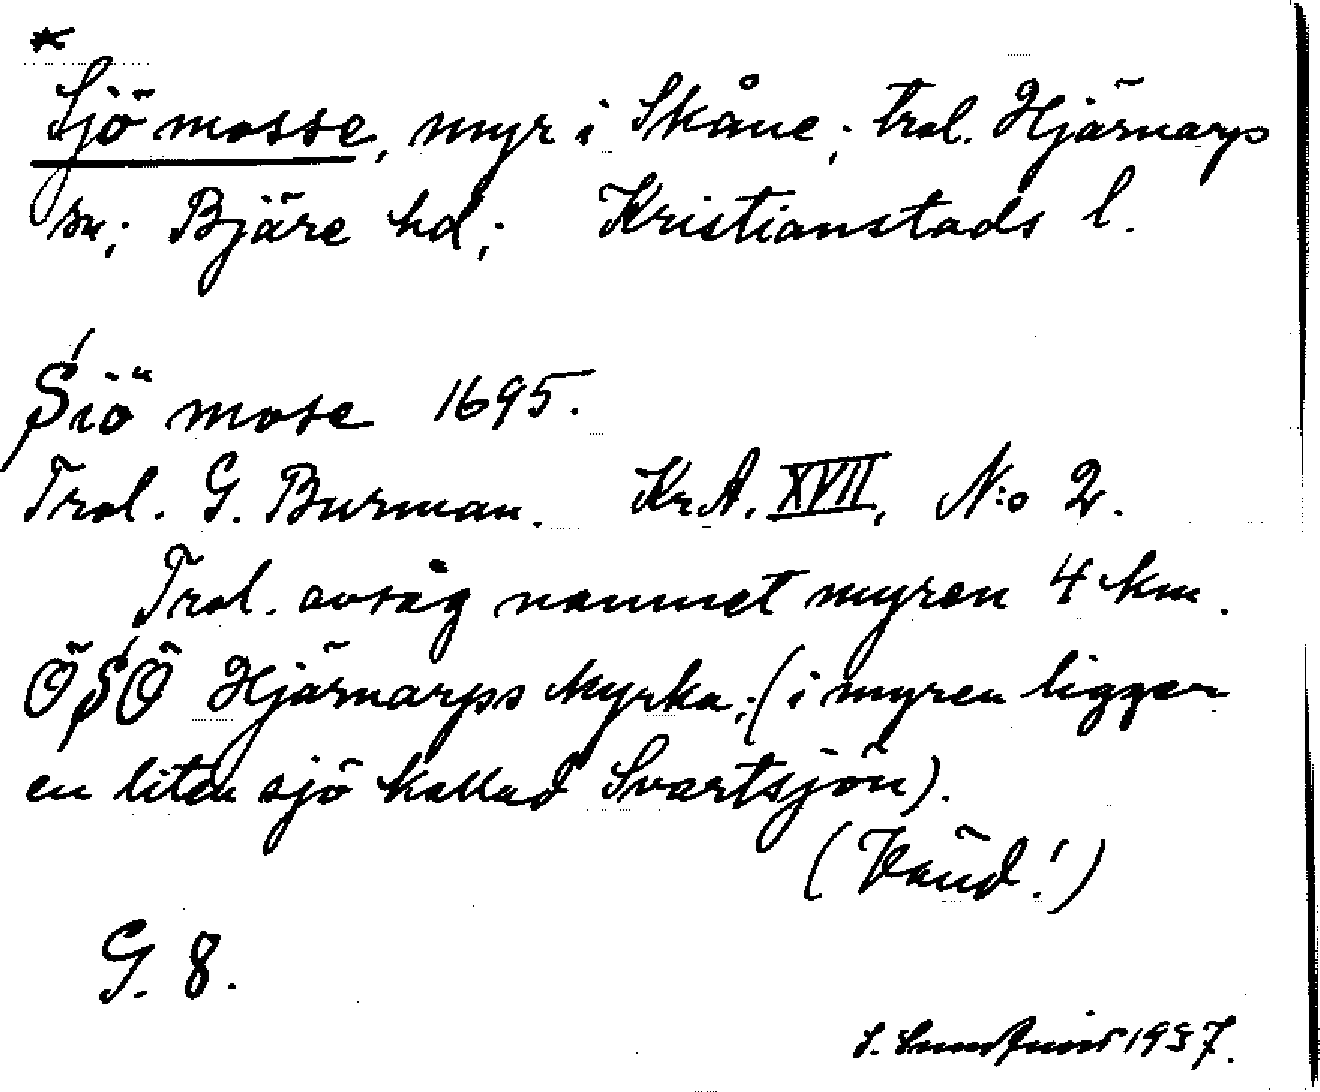 *
Sjö mosse, myr i Skåne; trol. Hjärnarps
sn; Bjäre hd; Kristianstads l.
Siö mose 1695.
Trol. G. Burman. KrA. XVII, N:o 2.
Trol. avsåg namnet myren 4 km.
ÖSÖ Hjärnarps kyrka; (i myren ligger
en liten sjö kallad Svartsjön).
(Vänd!)
G. 8.
S. 1937.